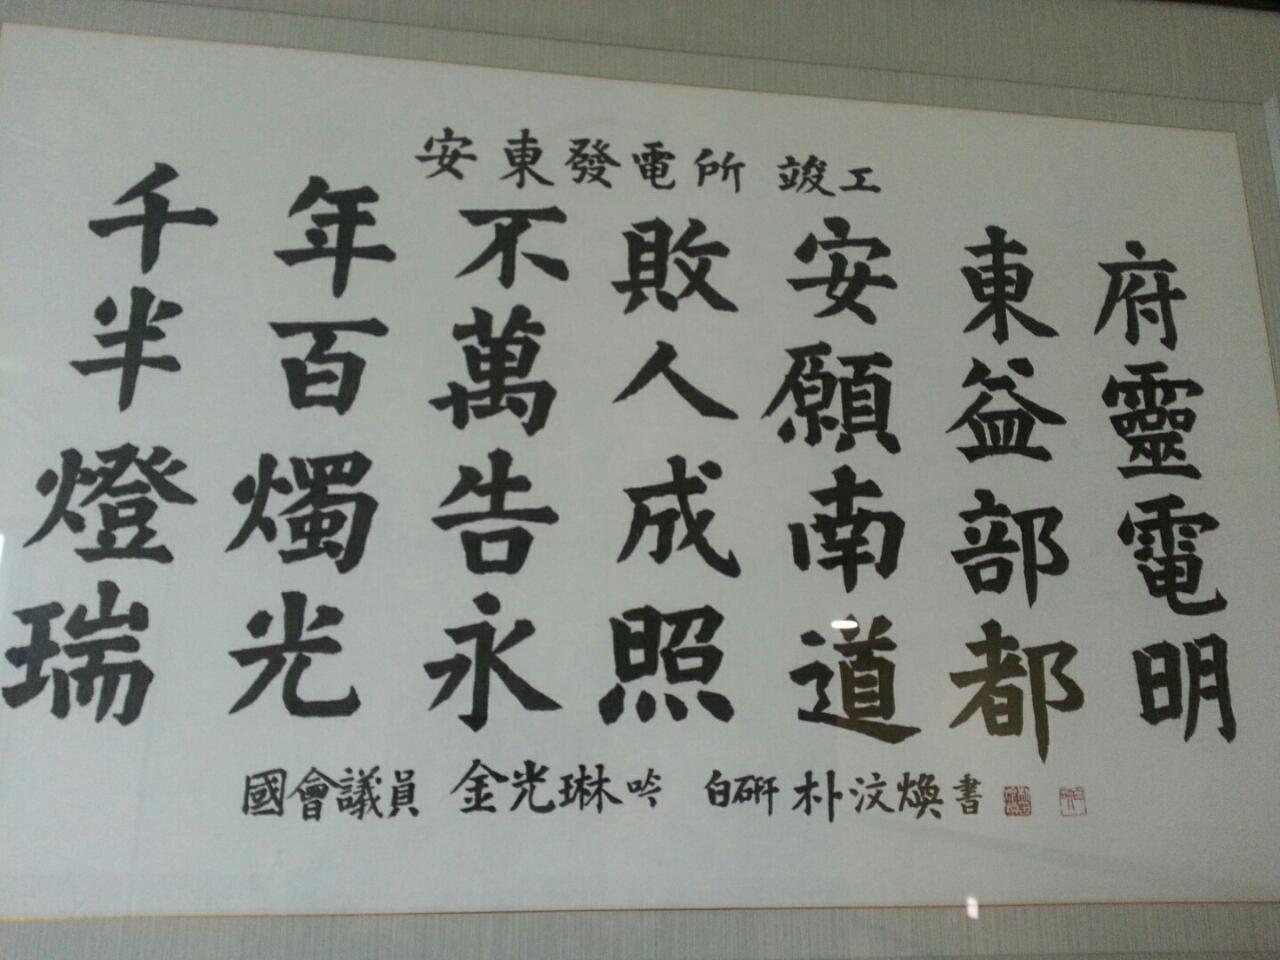 安東發電所 竣工
千年不敗安東府
半百萬人願益靈
燈燭告成南部電
瑞光永照道都明
國會議員 金光琳吟 白硏 朴汶煥書